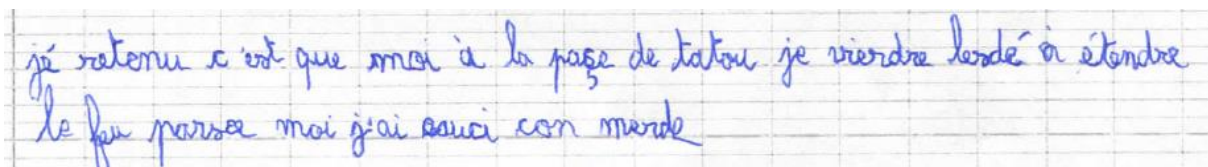 jé retenu c'est que moi à la paçe de tatou je vierdre lesdé à étendre
le feu parsce moi j'ai souci con merde